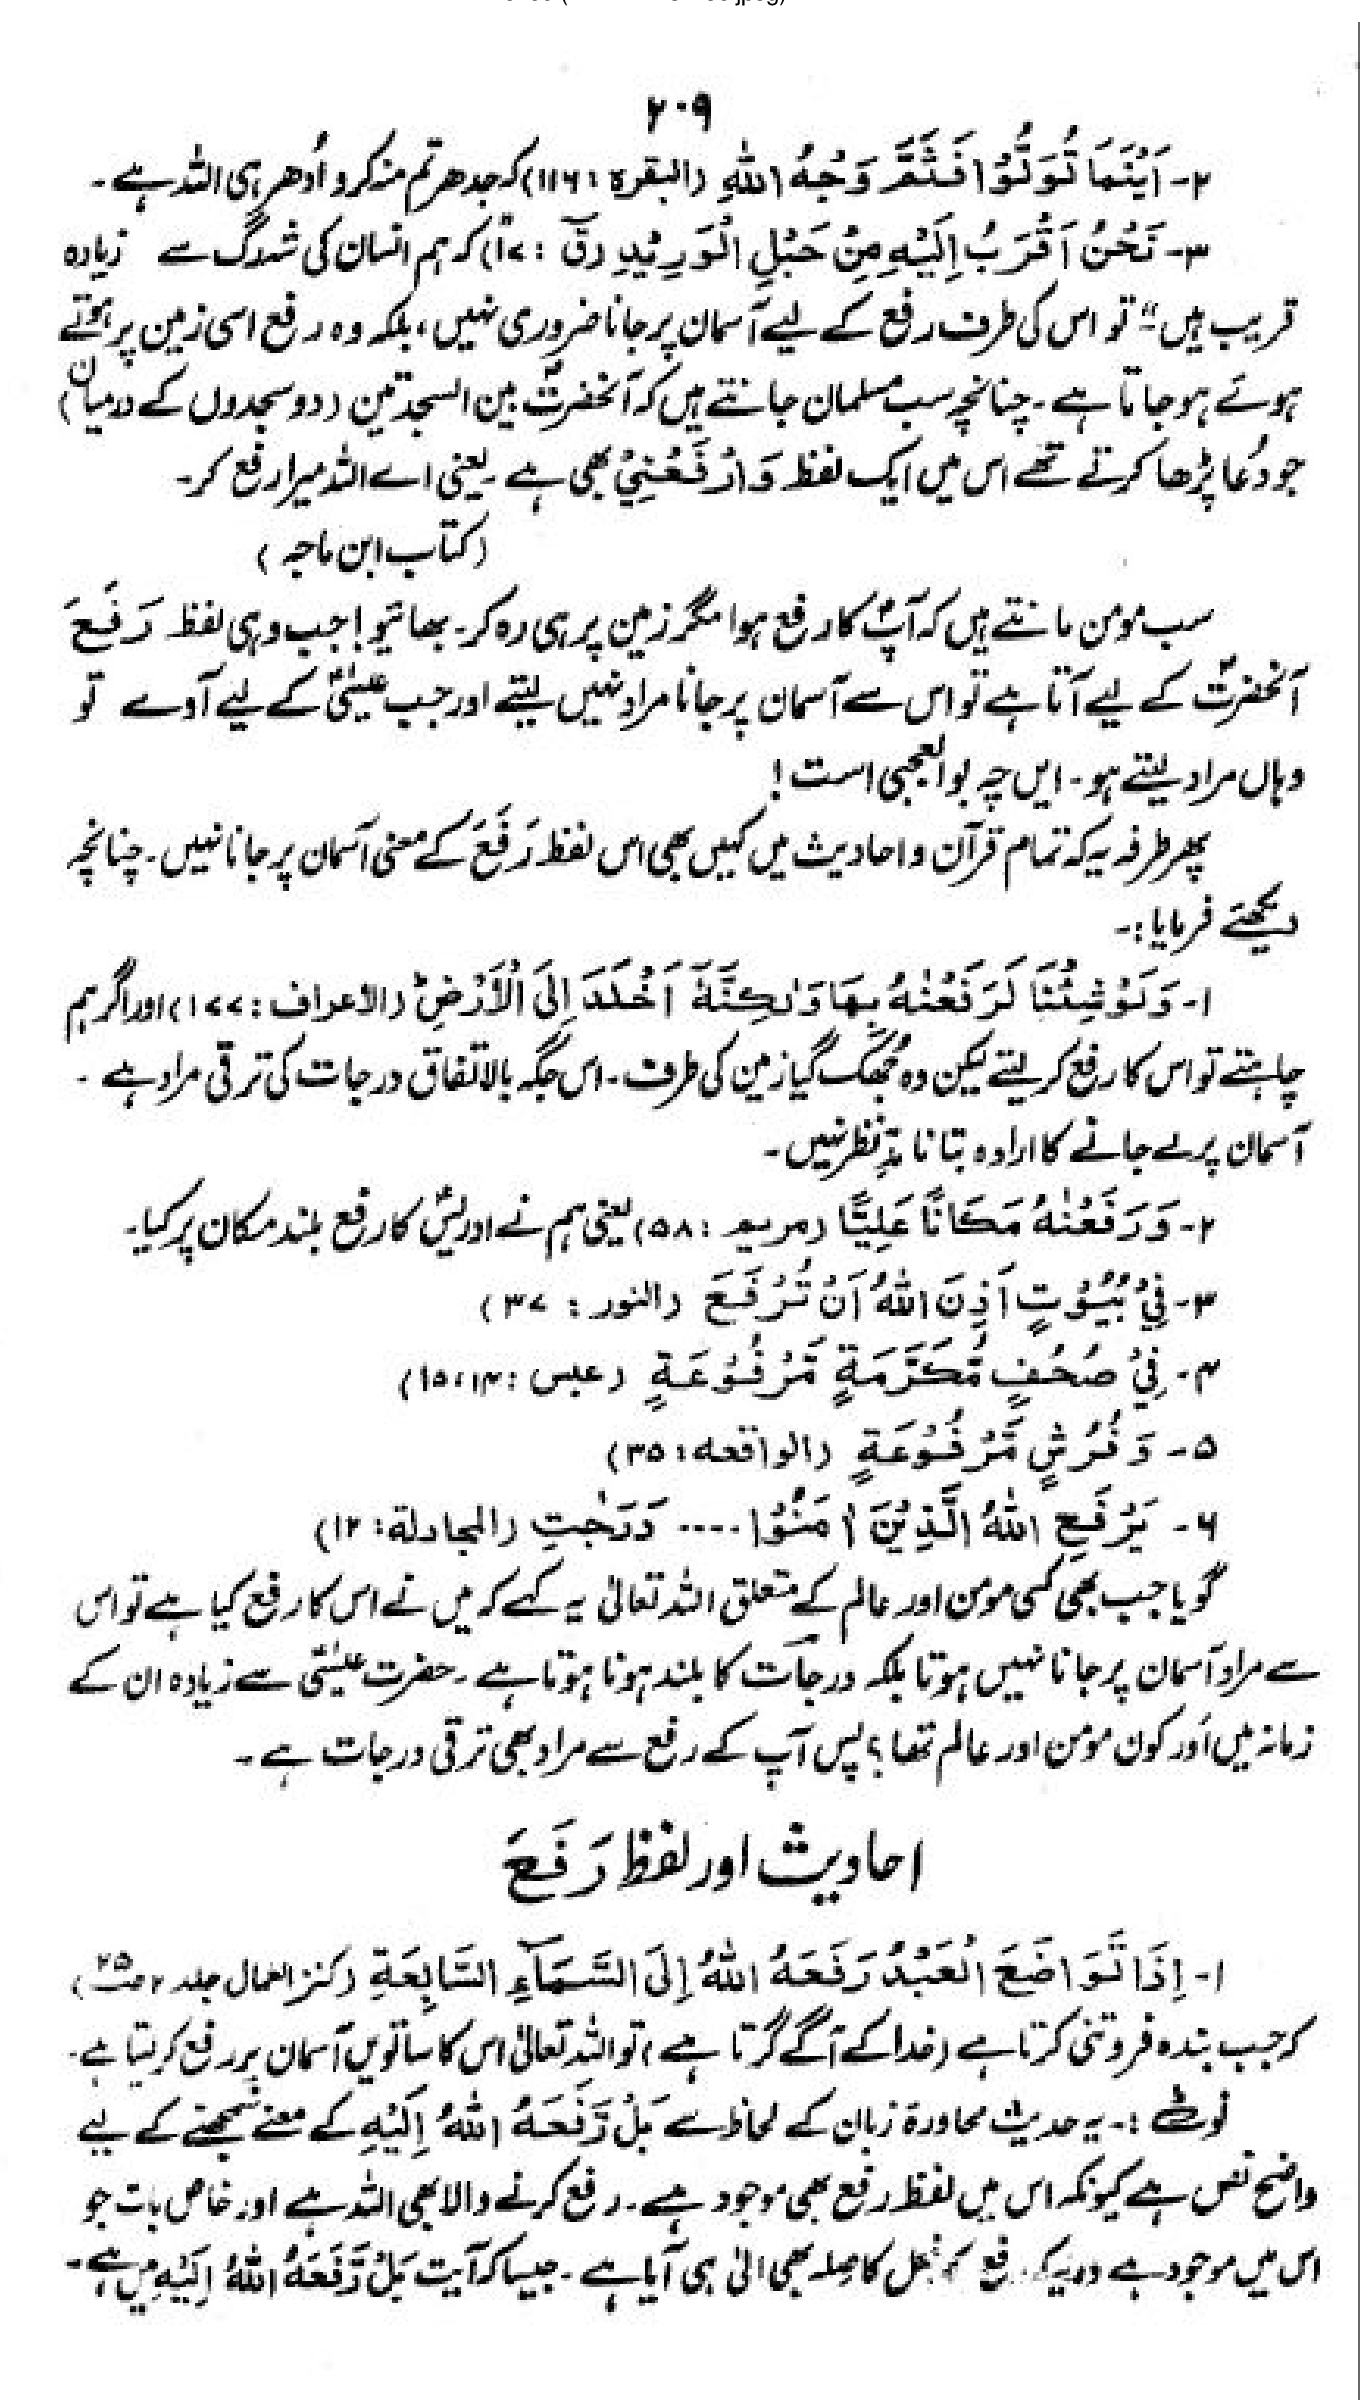 ۲۰۹
۲- اَيْنَمَا تُوَلُّوْا فَثَمَّ وَجْهُ اللّٰهِ (البقرہ : ۱۱۶) کہ جدھر تم منہ کرو اُدھر ہی اللہ ہے۔
۳- نَحْنُ اَقْرَبُ اِلَيْهِ مِنْ حَبْلِ الْوَرِيْدِ (قٓ : ۱۷) کہ ہم انسان کی شہ رگ سے زیادہ
قریب ہیں“ تو اس کی طرف رفع کے لیے آسمان پر جانا ضروری نہیں، بلکہ وہ رفع اسی زمین پر ہوتے
ہوئے ہو جاتا ہے۔ چنانچہ سب مسلمان جانتے ہیں کہ آنحضرتؐ بین السجدتین (دو سجدوں کے درمیان)
جو دُعا پڑھا کرتے تھے اس میں ایک لفظ وَارْفَعْنِيْ بھی ہے۔ یعنی اے اللہ میرا رفع کر۔
(کتاب ابن ماجہ)
سب مومن مانتے ہیں کہ آپؐ کا رفع ہوا مگر زمین پر ہی رہ کر۔ بھائیو! جب وہی لفظ رَفَعَ
آنحضرتؐ کے لیے آتا ہے تو اس سے آسمان پر جانا مراد نہیں لیتے اور جب عیسٰیؑ کے لیے آوے تو
وہاں مراد لیتے ہو۔ ایں چہ بوالعجبی است!
پھر طرفہ یہ کہ تمام قرآن و احادیث میں کہیں بھی اس لفظ رَفَعَ کے معنی آسمان پر جانا نہیں۔ چنانچہ
دیکھئے فرمایا:۔
۱- وَلَوْ شِئْنَا لَرَفَعْنٰهُ بِهَا وَلٰكِنَّهٗٓ اَخْلَدَ اِلَى الْاَرْضِ (الاعراف : ۱۷۷) اور اگر ہم
چاہتے تو اس کا رفع کر لیتے لیکن وہ جُھک گیا زمین کی طرف۔ اس جگہ بالاتفاق درجات کی ترقی مراد ہے۔
آسمان پر لے جانے کا ارادہ بتانا مدِّنظر نہیں۔
۲- وَرَفَعْنٰهُ مَكَانًا عَلِيًّا (مریم : ۵۸) یعنی ہم نے ادریسؑ کا رفع بلند مکان پر کیا۔
۳- فِيْ بُيُوْتٍ اَذِنَ اللّٰهُ اَنْ تُرْفَعَ (النور : ۳۷)
۴- فِيْ صُحُفٍ مُّكَرَّمَةٍ مَّرْفُوْعَةٍ (عبس : ۱۴، ۱۵)
۵- وَفُرُشٍ مَّرْفُوْعَةٍ (الواقعہ : ۳۵)
۶- يَرْفَعِ اللّٰهُ الَّذِيْنَ اٰمَنُوْا .... دَرَجٰتٍ (المجادلۃ : ۱۲)
گویا جب بھی کسی مومن اور عالم کے متعلق اللہ تعالیٰ یہ کہے کہ میں نے اس کا رفع کیا ہے تو اس
سے مراد آسمان پر جانا نہیں ہوتا بلکہ درجات کا بلند ہونا ہوتا ہے۔ حضرت عیسٰیؑ سے زیادہ ان کے
زمانہ میں اَور کون مومن اور عالم تھا؟ پس آپ کے رفع سے مراد بھی ترقی درجات ہے۔
احادیث اور لفظ رَفَعَ
۱- اِذَا تَوَاضَعَ الْعَبْدُ رَفَعَهُ اللّٰهُ اِلَى السَّمَآءِ السَّابِعَةِ (کنز العمال جلد ۲ ص۲۵)
کہ جب بندہ فروتنی کرتا ہے (خدا کے آگے گرتا ہے) تو اللہ تعالیٰ اس کا ساتویں آسمان پر رفع کر لیتا ہے۔
نوٹ :۔ یہ حدیث محاورۃ زبان کے لحاظ سے بَلْ رَّفَعَهُ اللّٰهُ اِلَيْهِ کے معنے سمجھنے کے لیے
واضح نص ہے کیونکہ اس میں لفظ رفع بھی موجود ہے۔ رفع کرنے والا بھی اللہ ہے اور خاص بات جو
اس میں موجود ہے وہ یہ کہ رفع کا صلہ بھی الیٰ ہی آیا ہے۔ جیسا کہ آیت بَلْ رَّفَعَهُ اللّٰهُ اِلَيْهِ میں ہے۔